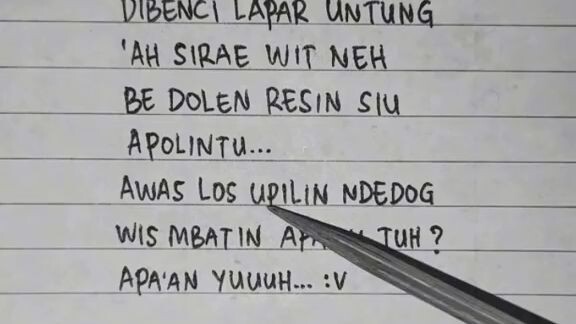 DIBENCI LAPAR UNTUNG
'AH SIRAE WIT NEH
BE DOLEN RESIN SIU
APOLINTU...
AWAS LOS UPILIN NDEDOG
WIS MBATIN TUH ?
APA'AN YUUUH... :V